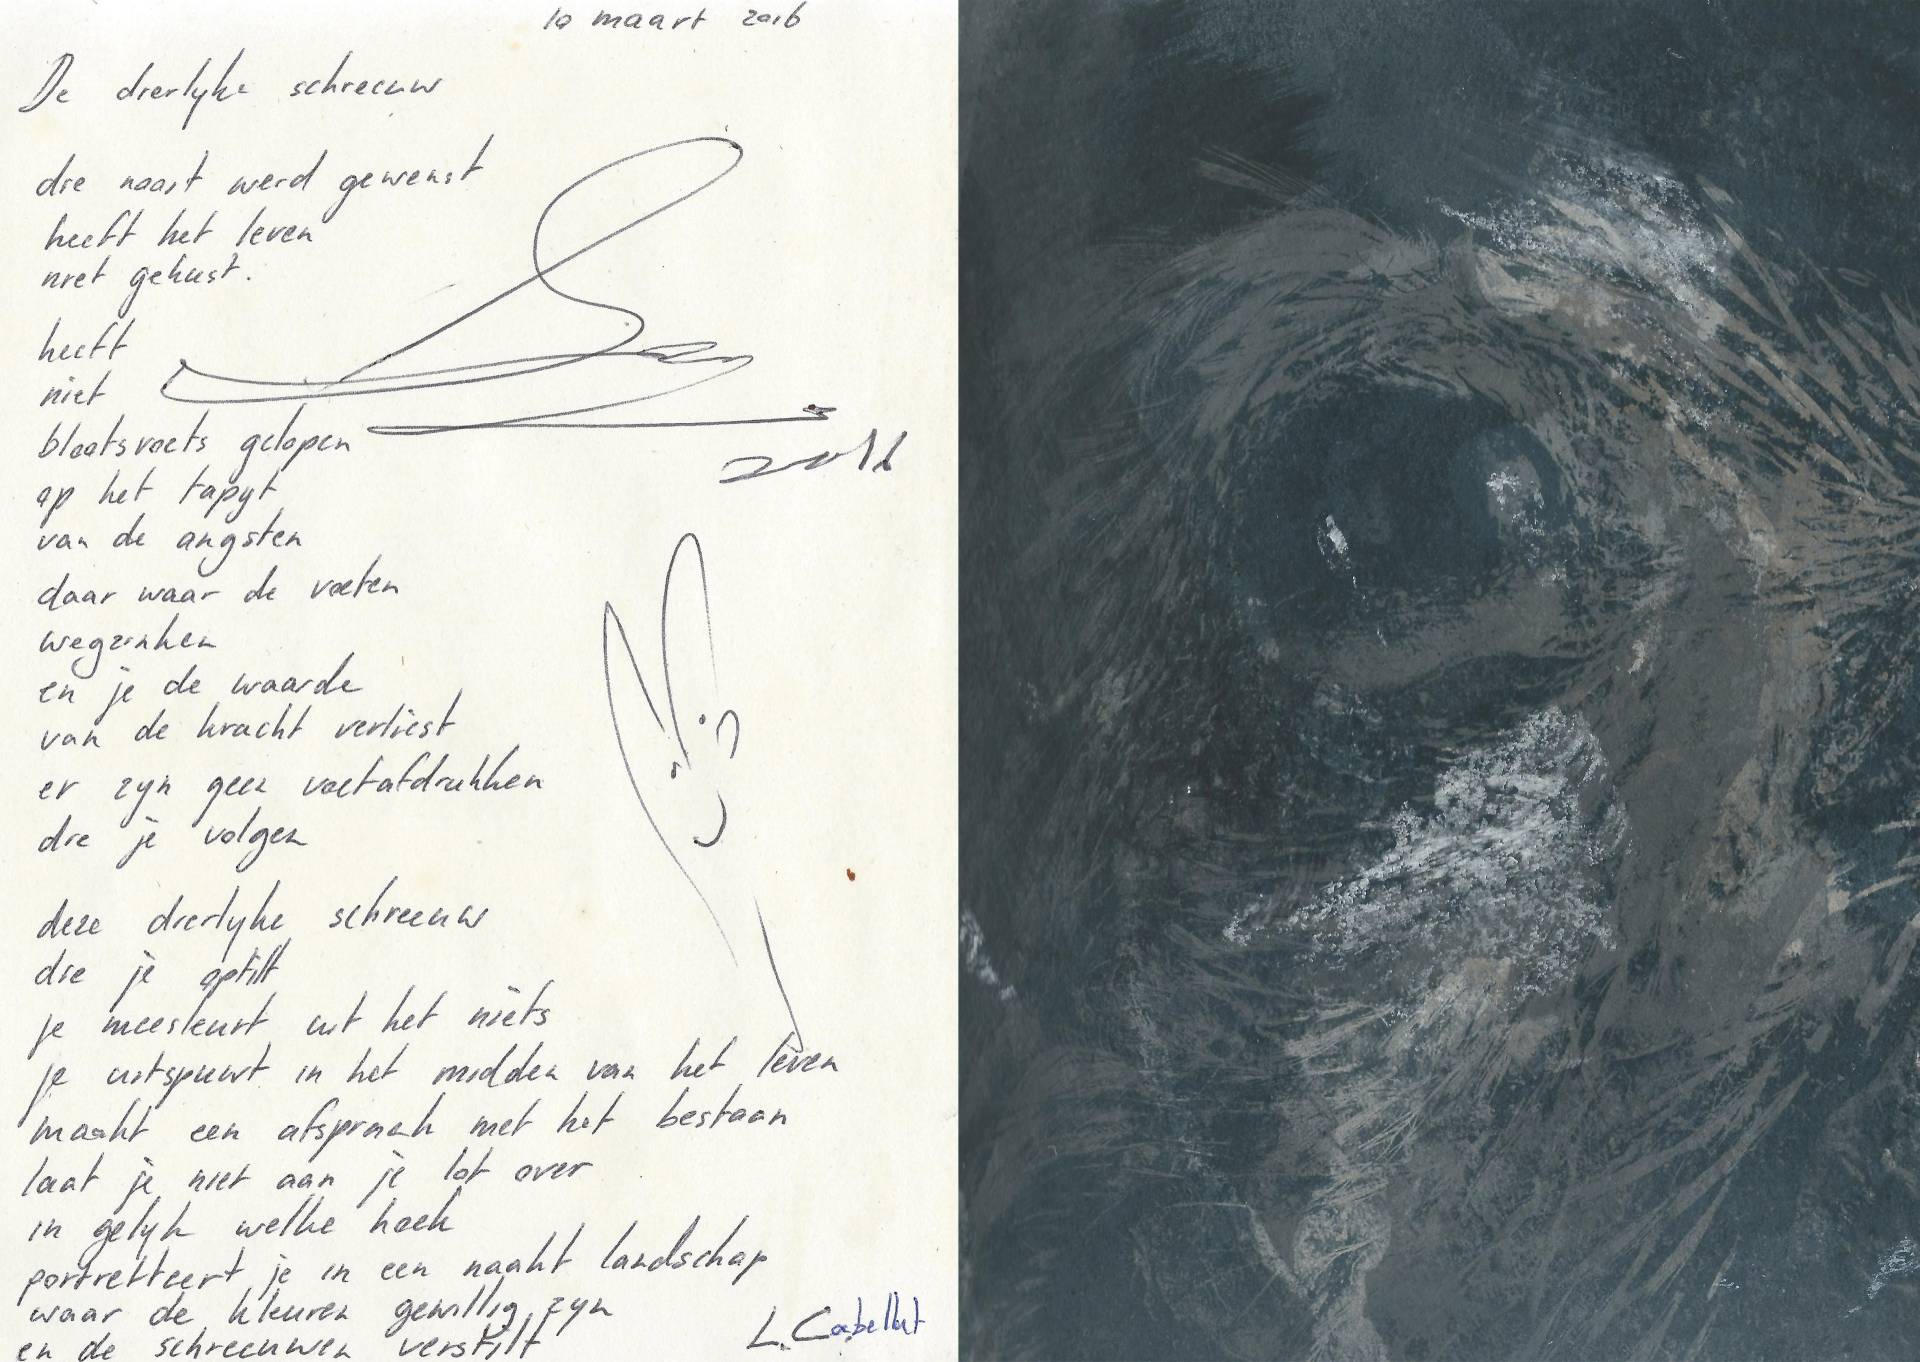 10 maart 2016
De dierlyke schreeuw
die naast werd gewenst
heeft het leven
niet gekust.
heeft
niet
blootsvoets gelopen
op het tapyt
van de angsten
daar waar de voeten
wegzinken
en je de waarde
van de kracht verliest
er zyn geen voetafdrukken
die je volgen
deze dierlyke schreeuw
die je optilt
je meesleurt uit het niets
je uitspuwt in het midden van het leven
maakt een afspraak met het bestaan
laat je niet aan je lot over
in gelyk welke hoek
portretteert je in een naakt landschap
waar de kleuren gewillig zyn
en de schreeuwen verstilt
2016
L. Cabellut